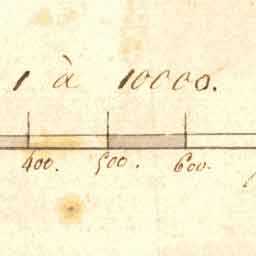 1 à 10000.
400. 500. 600.